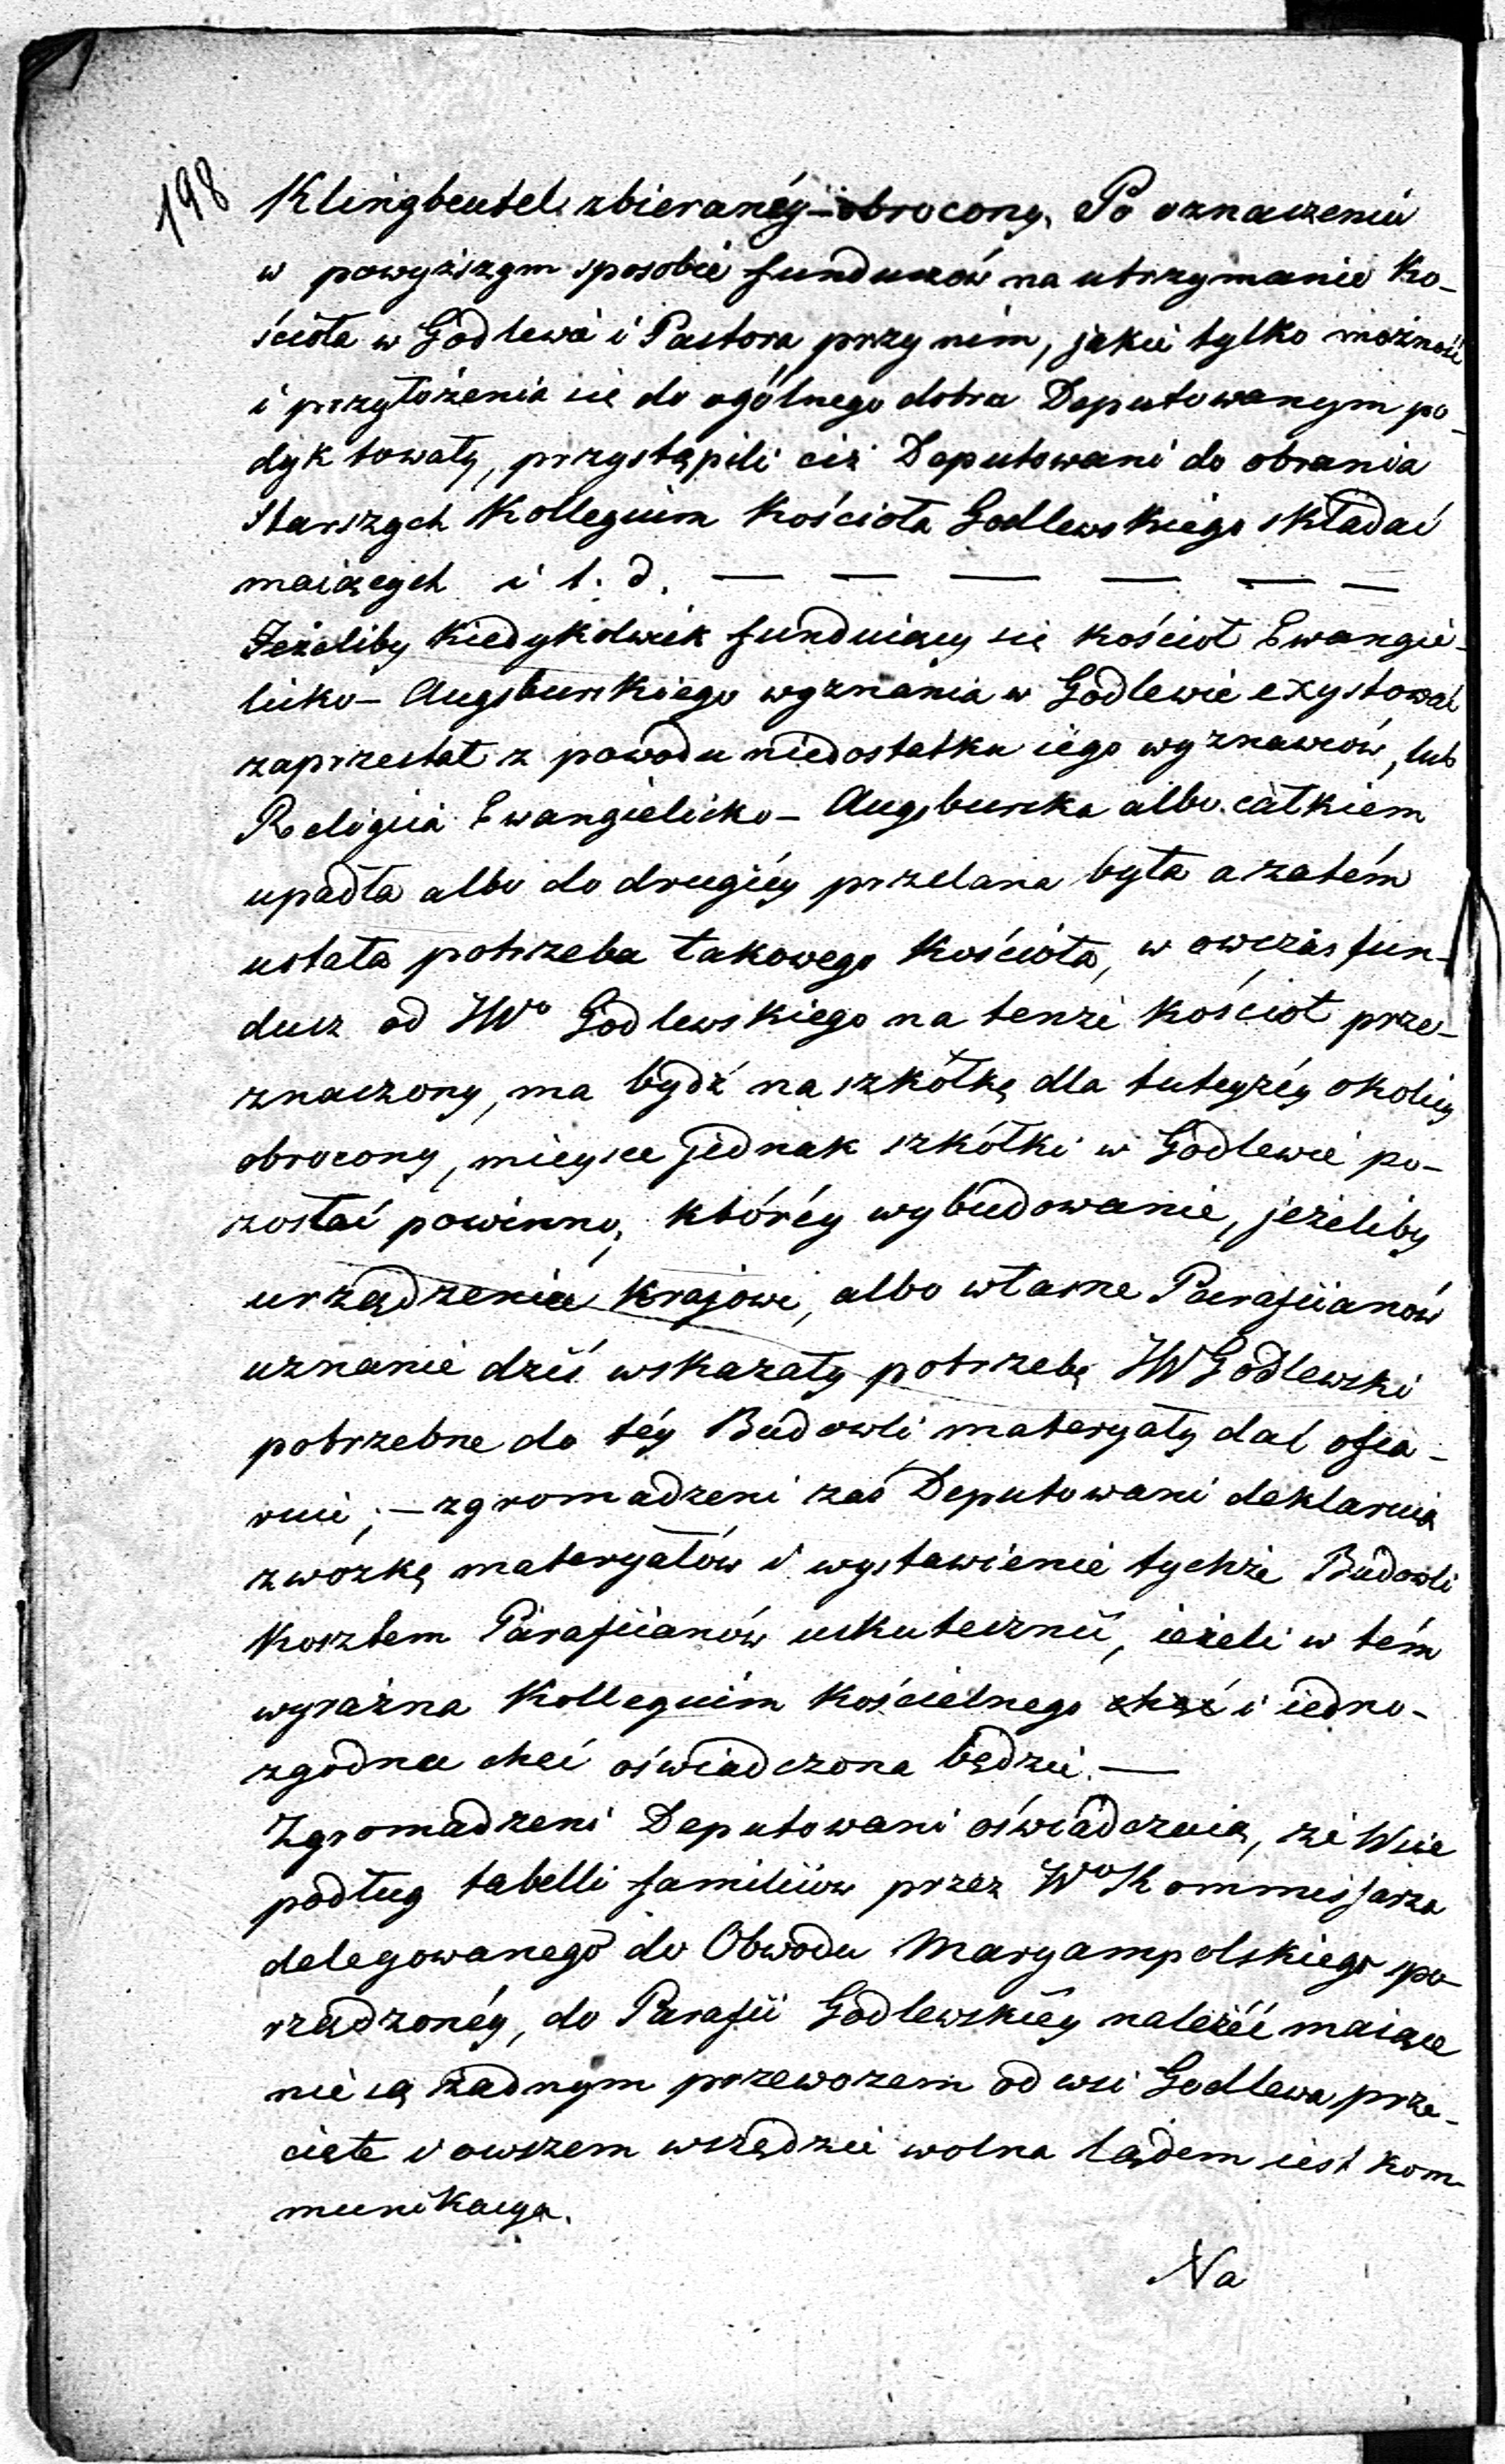 198
Klingbeutel zbieranéy – obrocony. Po oznaczeniu
w powyższym sposobie funduszów na utrzymanie Ko-
ścioła w Godlewie i Pastora przy nim, jakie tylko możność
i przyłożenia się do ogólnego dobra Deputowanym po-
dyktowały, przystąpili ciż Deputowani do obrania
Starszych Kollegium Kościoła Godlewskiego składać
maiących i t. d. — — — — — —
Jeżeliby kiedykolwiek funduiący się kościoł Ewangie-
licko – Augsburskiego wyznania w Godlewie exystować
zaprzestał z powodu niedostatku iego wyznawców, lub
Religiia Ewangielicko – Augsburska albo całkiem
upadła albo do drugiéy przelana była a zatém
ustała potrzeba takowego Kościoła, w owczas fun-
dusz od JWo Godlewskiego na tenże kościoł prze-
znaczony, ma bydź na szkółkę dla tuteyszéy okolicy
obrocony, mieysce jednak szkółki w Godlewie po-
zostać powinno, któréy wybudowanie, jeżeliby
urządzenia Krajowe, albo własne Parafiianów
uznanie dziś wskazały potrzebę JW Godlewski
potrzebne do téy Budowli materyały dać ofia-
ruie; – zgromadzeni zaś Deputowani deklaruią
zwózkę materyałów i wystawienie tychże Budowli
Kosztem Parafiianów uskutecznić, ieżeli w tém
wyraźna Kollegium Kościelnego chęć i iedno-
zgodna chęć oświadczona będzie. —
Zgromadzeni Deputowani oświadczaią, że Wsie
podług tabelli familiiów przez Wo Kommissarza
delegowanego do Obwodu Maryampolskiego spo-
rządzonéy, do Parafii Godlewskiéy należéć maiące
nie są żadnym przewozem od wsi Godlewa prze-
cięte i owszem wszędzie wolna lądem iest kom-
munikacya.
Na